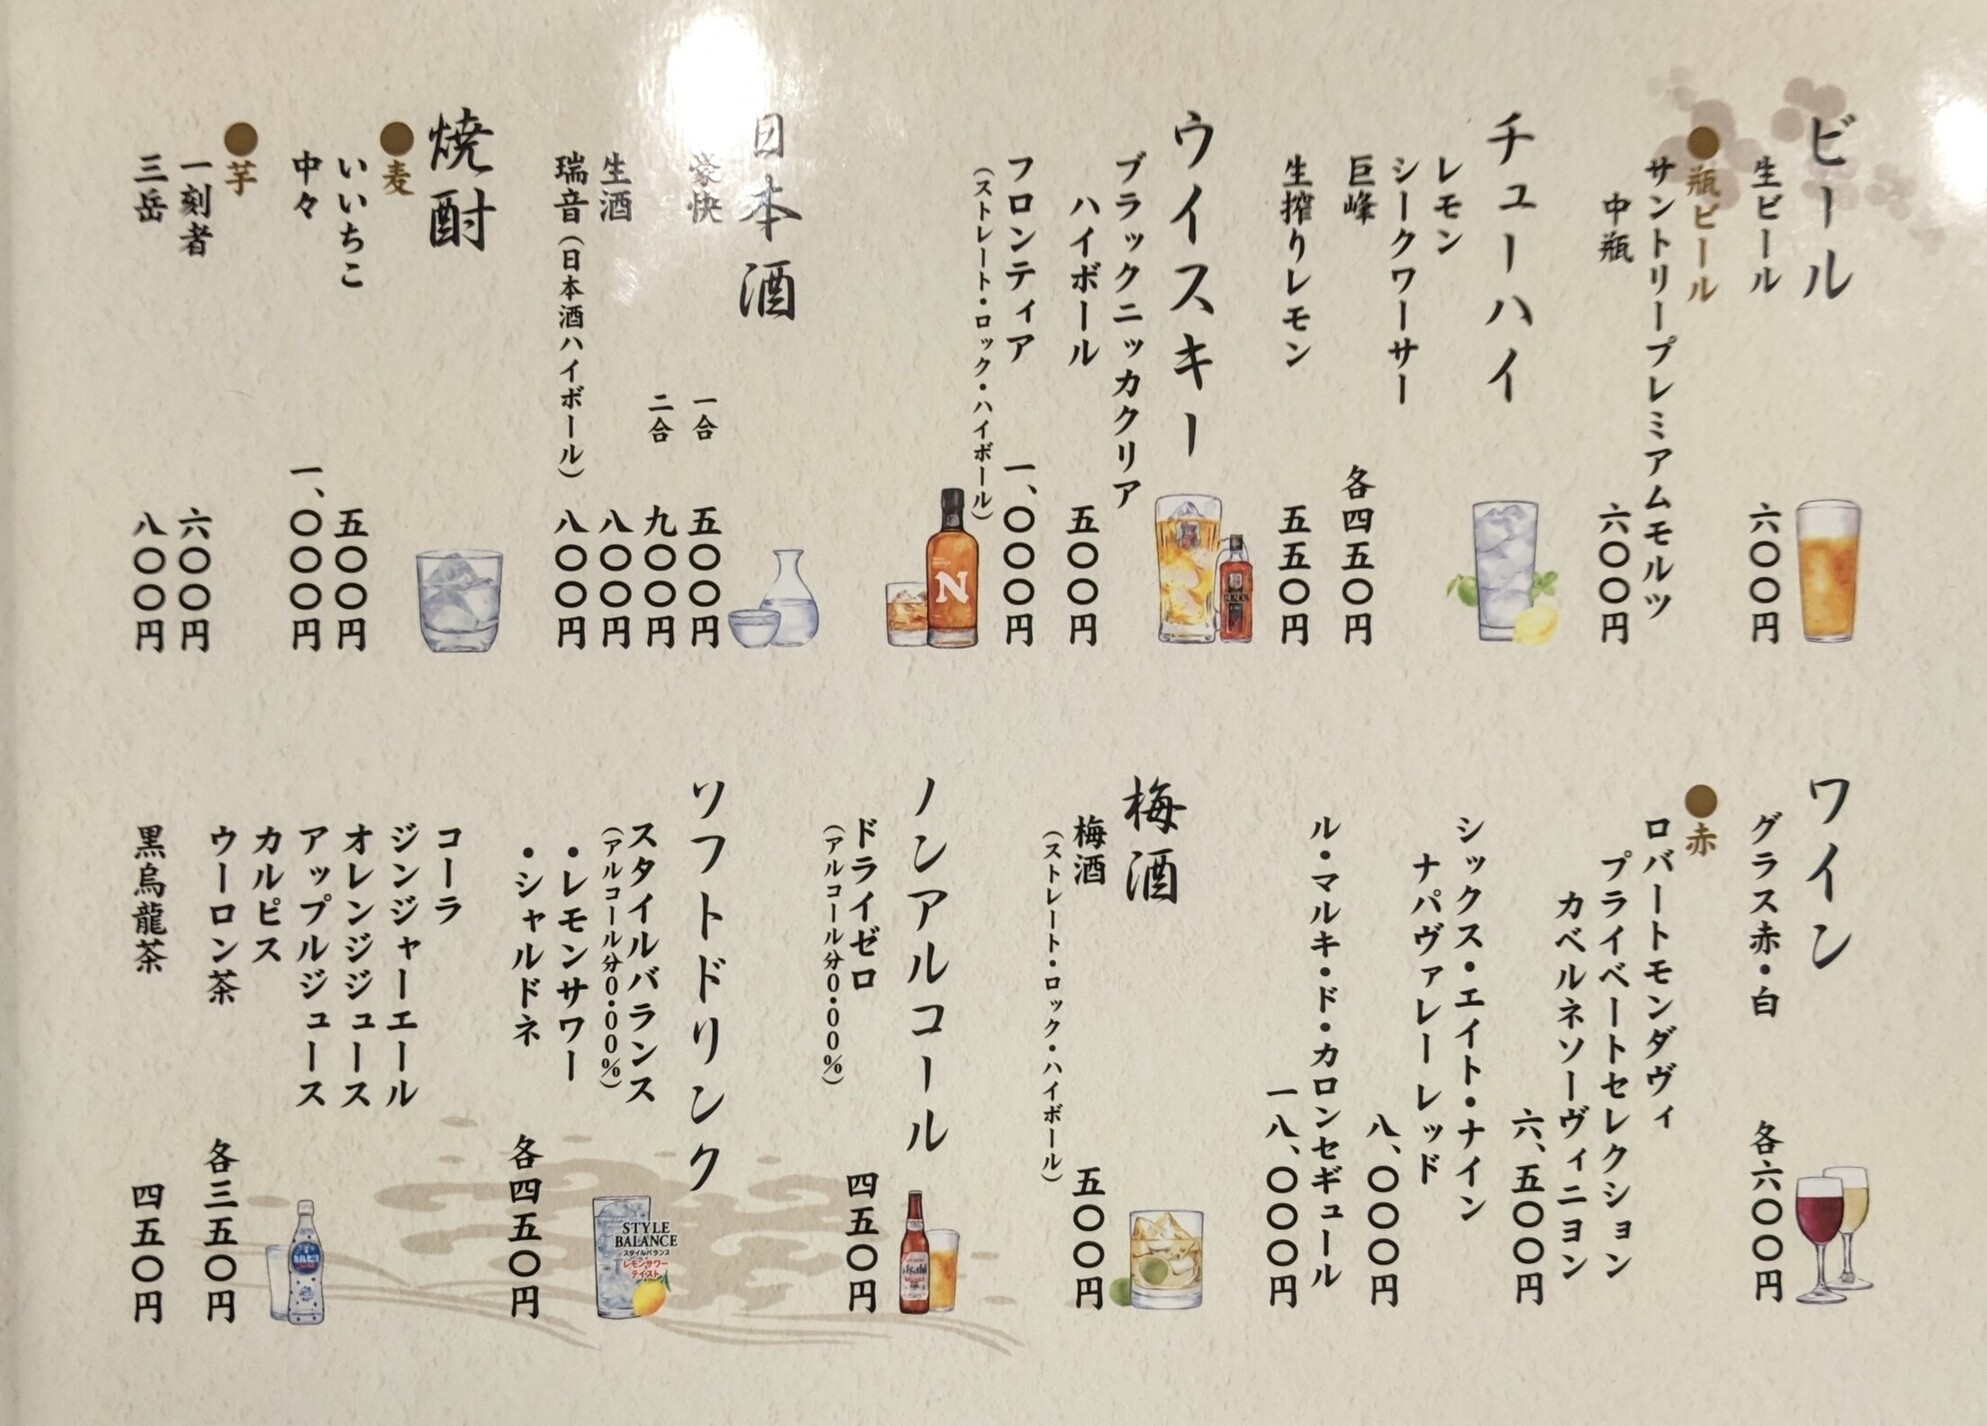 ビール
生ビール 六〇〇円
●瓶ビール
サントリープレミアムモルツ
中瓶 六〇〇円
チューハイ
レモン
シークワーサー
巨峰 各四五〇円
生搾りレモン 五五〇円
ウイスキー
ブラックニッカクリア
ハイボール 五〇〇円
フロンティア 一、〇〇〇円
(ストレート・ロック・ハイボール)
日本酒
豪快 一合 五〇〇円
二合 九〇〇円
生酒 八〇〇円
瑞音(日本酒ハイボール) 八〇〇円
焼酎
●麦
いいちこ 五〇〇円
中々 一、〇〇〇円
●芋
一刻者 六〇〇円
三岳 八〇〇円
ワイン
グラス赤・白 各六〇〇円
●赤
ロバートモンダヴィ
プライベートセレクション
カベルネソーヴィニヨン
六、五〇〇円
シックス・エイト・ナイン
ナパヴァレー レッド
八、〇〇〇円
ル・マルキ・ド・カロンセギュール
一八、〇〇〇円
梅酒
梅酒 五〇〇円
(ストレート・ロック・ハイボール)
ノンアルコール
ドライゼロ 四五〇円
(アルコール分0.00%)
Asahi
ソフトドリンク
スタイルバランス
(アルコール分0.00%)
・レモンサワー
・シャルドネ 各四五〇円
STYLE
BALANCE
スタイルバランス
レモンサワー
テイスト
コーラ
ジンジャーエール
オレンジジュース
アップルジュース
カルピス
ウーロン茶 各三五〇円
黒烏龍茶 四五〇円
N